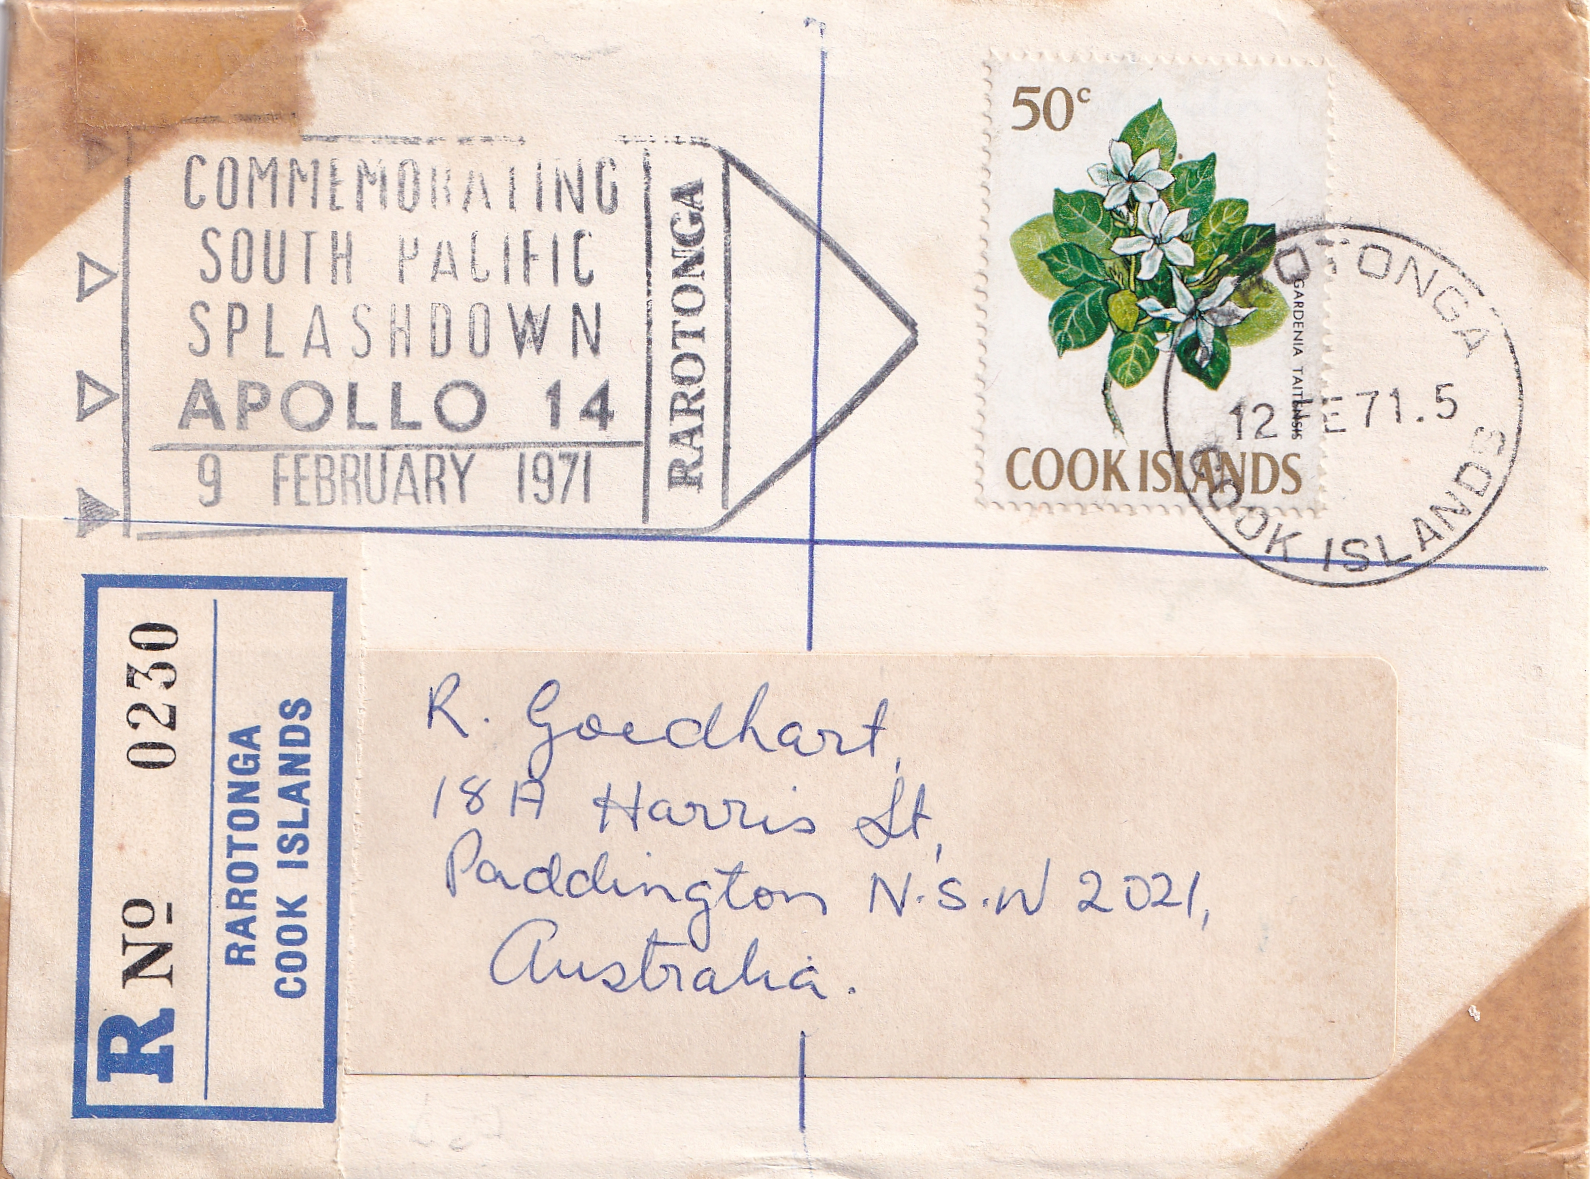 COMMEMORATING
SOUTH PACIFIC
SPLASHDOWN
APOLLO 14
9 FEBRUARY 1971
RAROTONGA
50c
GARDENIA TAITENSIS
COOK ISLANDS
ROTONGA
12 E71.5
COOK ISLANDS
R No 0230
RAROTONGA
COOK ISLANDS
R. Goedhart,
18A Harris St,
Paddington N.S.W 2021,
Australia.